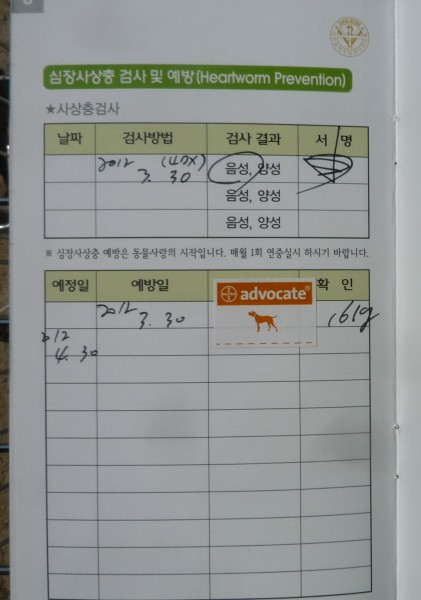 심장사상충 검사 및 예방(Heartworm Prevention)
★사상충검사
날짜 검사방법 검사 결과 서 명
2012 (4DX) 음성, 양성
3. 30
음성, 양성
음성, 양성
※ 심장사상충 예방은 동물사랑의 시작입니다. 매월 1회 연중실시 하시기 바랍니다.
예정일 예방일 확 인
BAYER advocate
2012
3. 30
2012
4. 30